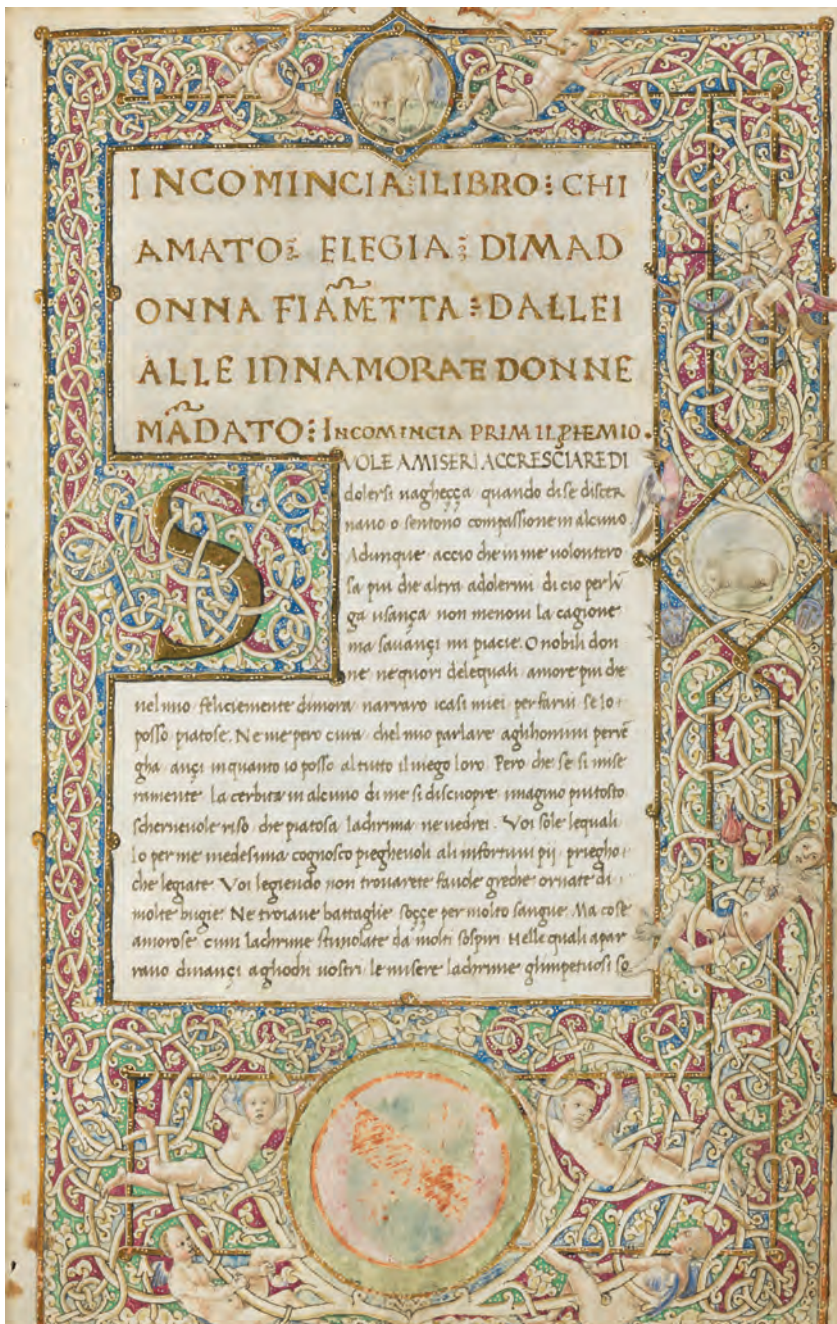 INCOMINCIA⁝ILIBRO⁝CHI
AMATO⁝ ELEGIA⁝ DIMAD
ONNA FIAM̃ETTA⁝DALLEI
ALLE INNAMORATE DONNE
MÃDATO⁝INCOMINCIA PRIM IL PHEMIO.
SVOLE A MISERI ACCRESCIARE DI
dolersi uagheçça quando di se discer
nano o sentono compassione in alcuno
Adunque accio che in me uolontero
sa piu che altra adolermi di cio per lũ
ga usança non menoui la cagione
ma sauançi mi piacie. O nobili don
ne nequori delequali amore piu che
nel mio feliciemente dimora narraro icasi miei per farui se lo
posso piatose. Ne me pero cura chel mio parlare aglihomini peruẽ
gha ançi inquanto io posso al tutto il niego loro. Pero che se si mise
ramente La cerbita in alcuno di me si discuopre imagino piutosto
schernevole riso che piatosa lachrima ne uedrei. Voi sole lequali
Io per me medesima cognosco piegheuoli ali infortuni pii priegho
che legiate Voi legiendo non trouarete fauole greche ornate di
molte bugie Ne troiane battaglie soççe per molto sangue Ma cose
amorose cum lachrime stimolate da molti sospiri Nelle quali apar
rano dinançi agliochi uostri le misere lachrime glimpetuosi so